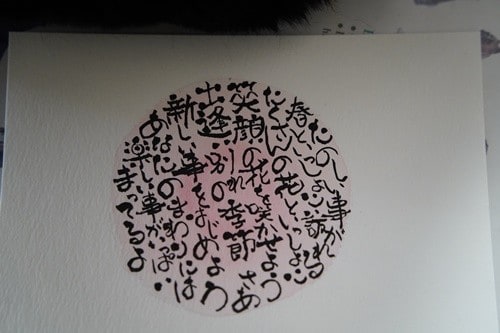 たのしい事が
春といっしょに訪れる
たくさんの花といっしょに
笑顔の花を咲かせよう
出逢い別れの季節 さあ
新しい事をはじめよう
あなたのまわりには
楽しい事がいっぱい
まってるよ